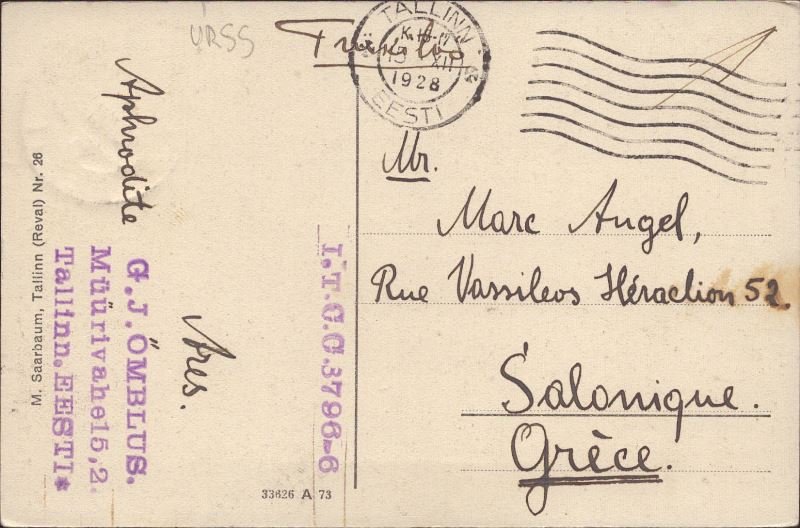 URSS
TALLINN
XII
1928
EESTI
Aphrodite
Ares.
G.J.ÕMBLUS.
Müürivahe15,2.
Tallinn.EESTI*
M. Saarbaum, Tallinn (Reval) Nr. 26
I.T.C.C.3796-6
33626 A 73
Mr.
Marc Angel,
Rue Vassileos Héraclion 52.
Salonique.
Grèce.